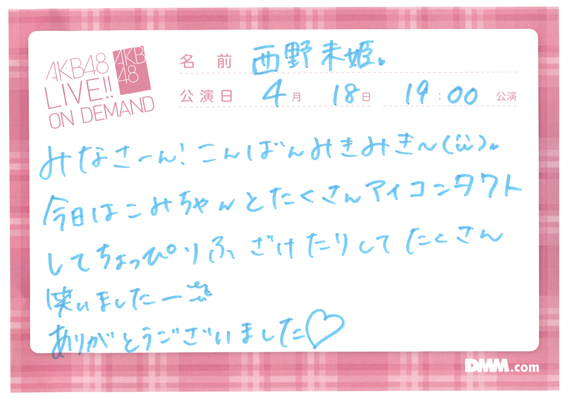 AKB48
LIVE!!
ON DEMAND
AKB
48
名前 西野未姫。
公演日 4月 18日 19:00 公演
みなさーん!こんばんみきみき〜(ü)。
今日はこみちゃんとたくさんアイコンタクト
してちょっぴりふざけたりしてたくさん
笑いましたー
ありがとうございました♡
DMM.com